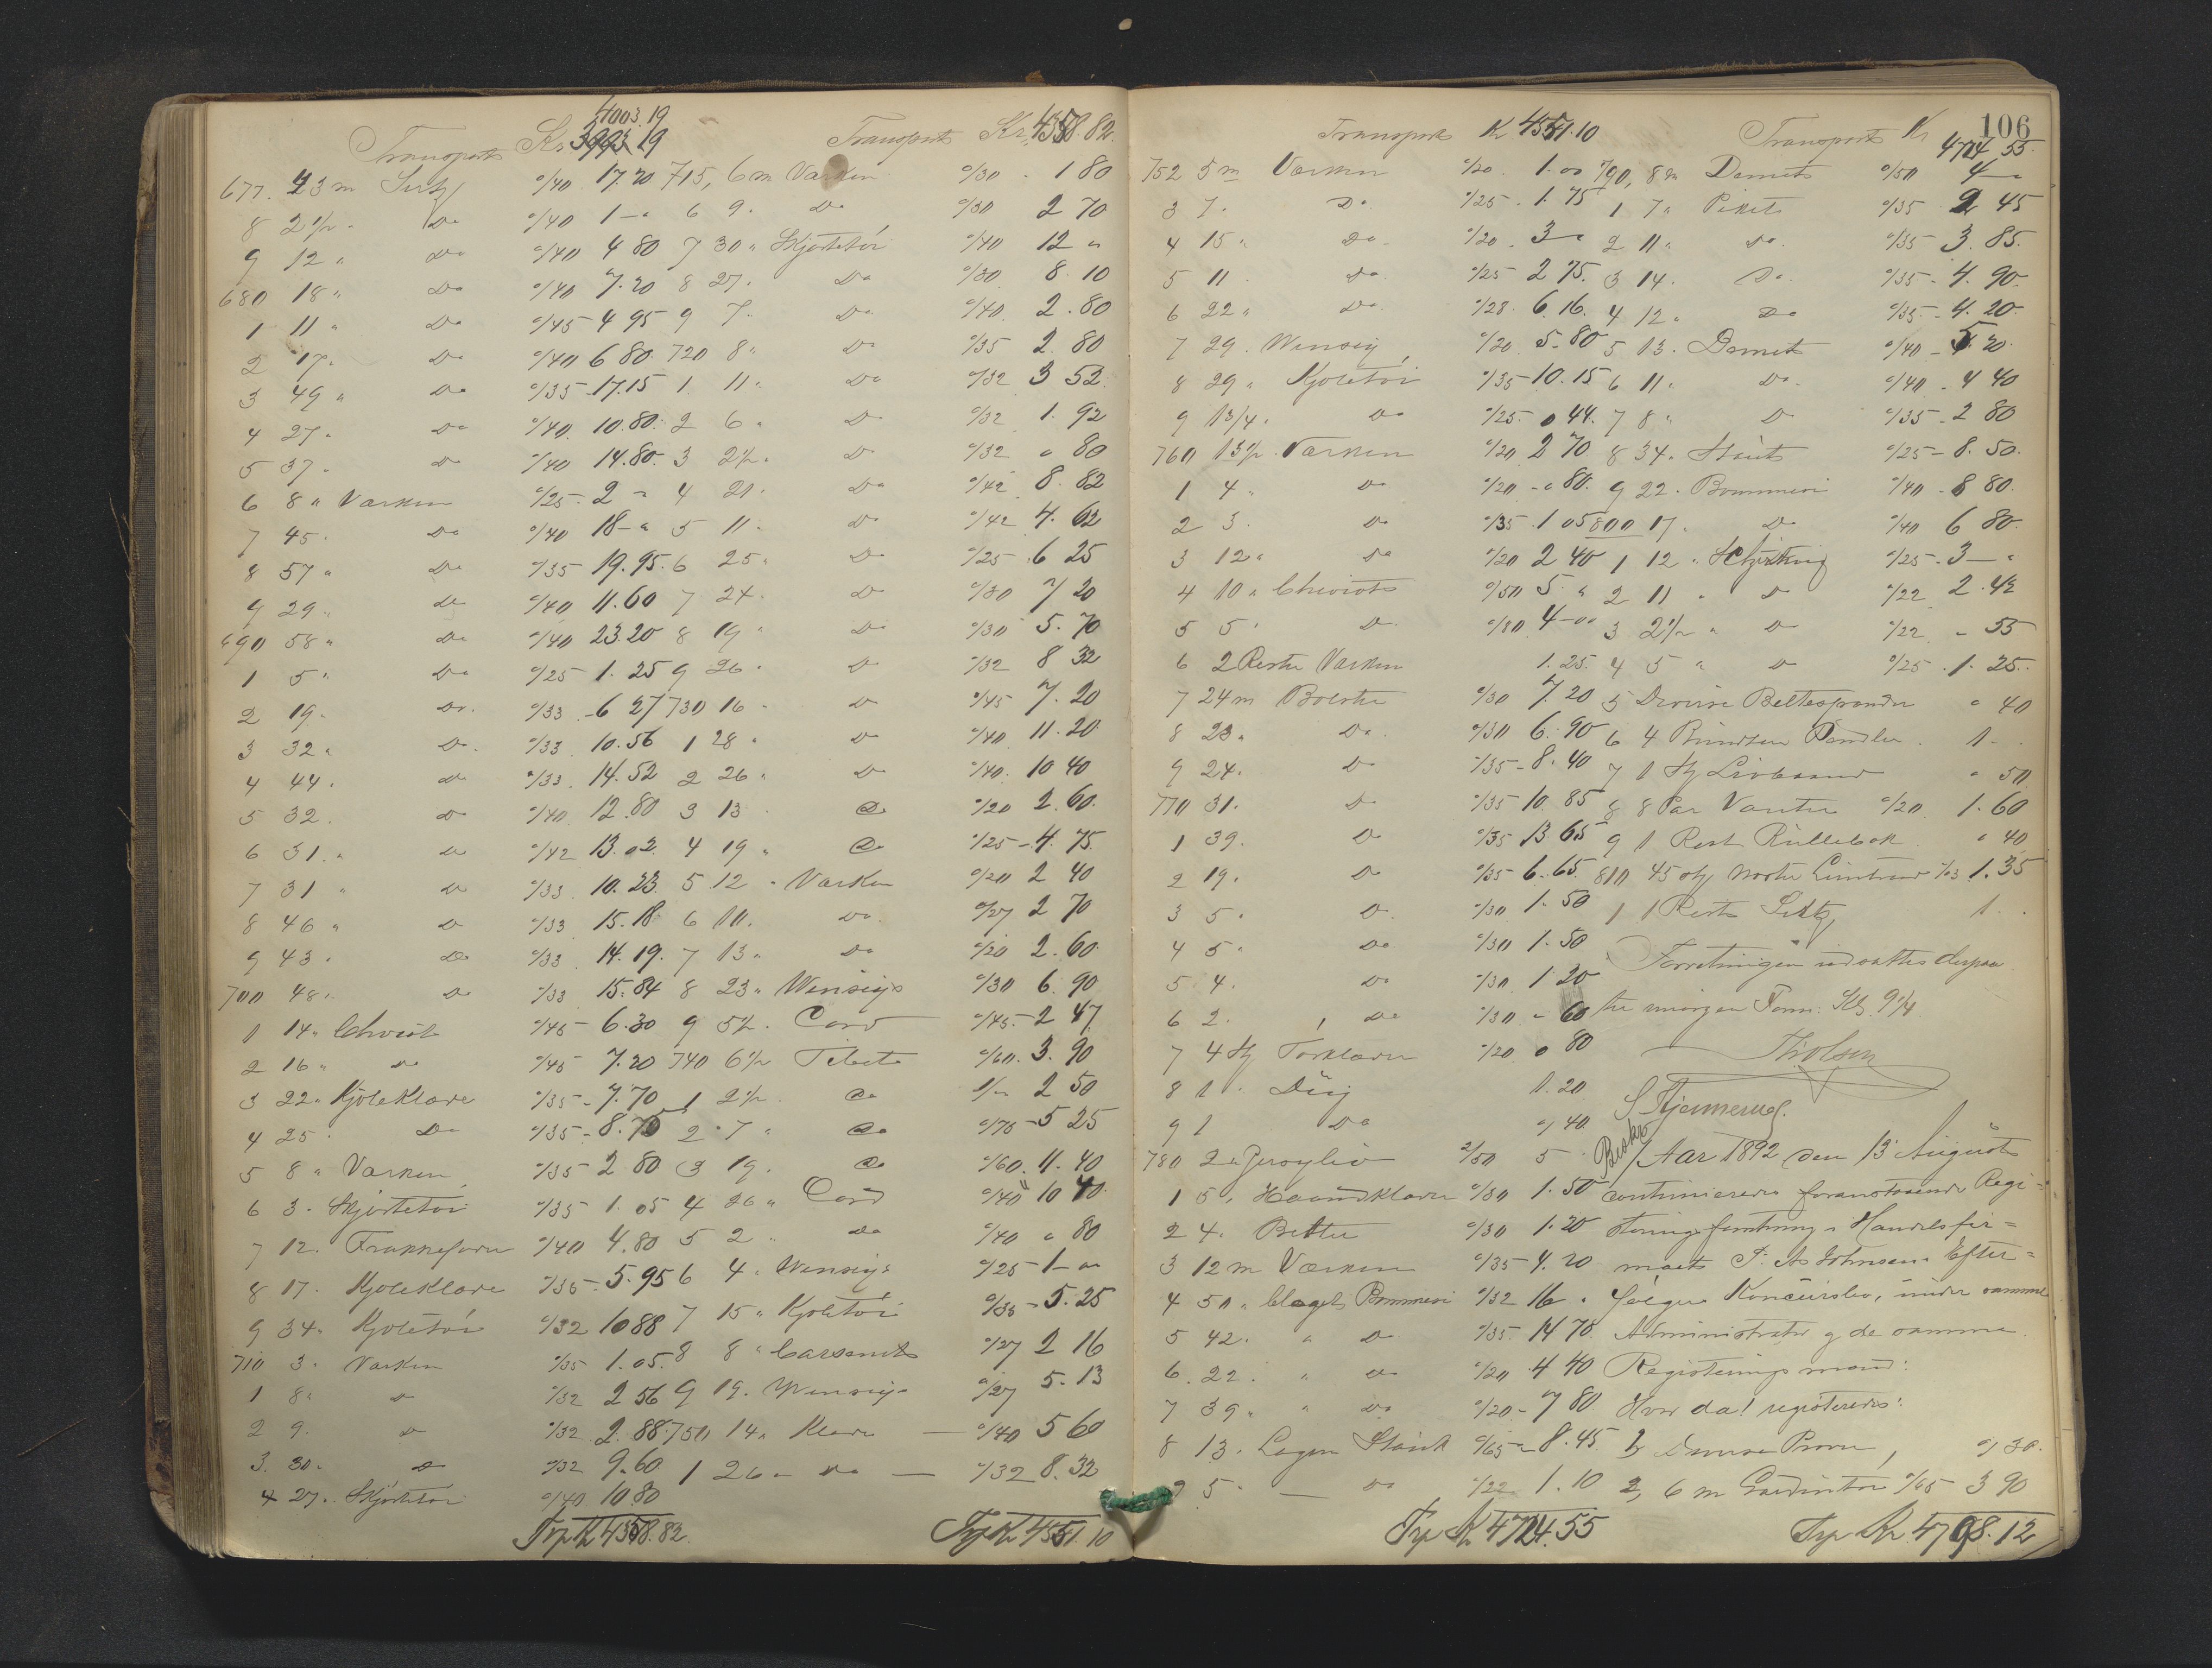 Transport Kr 4003.19
3993.19
677. 43 m Sirtz º/40 17.20
8 2½ " Do º/40 1 - "
9 12 " Do º/40 4 80
680 18 " Do º/40 7.20
1 11 " Do º/45 4 95
2 17 " Do º/40 6 80
3 49 " Do º/35 17.15
4 27 " Do º/40 10.80
5 37 " Do º/40 14.80
6 8 " Værken º/25 2 - "
7 45 " Do º/40 18 - "
8 57 " Do º/35 19.95
9 29 " Do º/40 11.60
690 58 " Do º/40 23.20
1 5 " Do º/25 1.25
2 19 " Do º/33 6 27
3 32 " Do º/33 10.56
4 44 " Do º/33 14.52
5 32 " Do º/40 12.80
6 31 " Do º/42 13.02
7 31 " Do º/33 10.23
8 46 " Do º/33 15.18
9 43 " Do º/33 14.19
700 48 " Do º/33 15.84
1 14 " Cheviot º/45 6.30
2 16 " Do º/45 7.20
3 22 " Kjoleklæde º/35 7.70
4 25 " Do º/35 8.75
5 8 " Værken º/35 2 80
6 3 " Skjortetøi º/35 1.05
7 12 " Frakkefoder º/40 4.80
8 17 " Kjoleklæde º/35 5.95
9 34 " Kjoletøi º/32 10 88
710 3 " Værken º/35 1.05
1 8 " Do º/32 2 56
2 9 " Do º/32 2.88
3 30 " Do º/32 9.60
4 27 " Skjortetøi º/40 10.80
Trp Kr 4358.82
Transport Kr. 4358.82
715, 6 m Værken º/30 1 80
6 9 " Do º/30 2 70
7 30 " Skjortetøi º/40 12 "
8 27 " Do º/30 8.10
9 7 " Do º/40 2.80
720 8 " Do º/35 2.80
1 11 " Do º/32 3 52
2 6 " Do º/32 1.92
3 2½ " Do º/32 " 80
4 21 " Do º/42 8.82
5 11 " Do º/42 4.62
6 25 " Do º/25 6 25
7 24 " Do º/30 7 20
8 19 " Do º/30 5.70
9 26 " Do º/32 8 32
730 16 " Do º/45 7.20
1 28 " Do º/40 11.20
2 26 " Do º/40 10 40
3 13 " Do º/20 2.60
4 19 " Do º/25 4.75
5 12 " Værken º/20 2 40
6 10 " Do º/27 2 70
7 13 " Do º/20 2.60
8 23 " Winsey º/30 6.90
9 5½ " Cord º/45 2 47
740 6½ Tibet º/60 3.90
1 2½ " Do 1/" 2 50
2 7 " Do º/75 5 25
3 19 " Do º/60 11.40
4 26 " Cord º/40 10 40
5 2 " Do º/40 " 80
6 4 " Winsey º/25 1 - "
7 15 " Kjoletøi º/35 5.25
8 8 " Carsenets º/27 2 16
9 19 " Winsey º/27 5.13
750 14 " Klæde º/40 5 60
1 26 " Do º/32 8.32
Trp Kr 4551.10
106
Transport Kr 4551.10
752 5 m Værken º/20 1.00
3 7 " Do º/25 1.75
4 15 " Do º/20 3 - "
5 11 " Do º/25 2 75
6 22 " Do º/28 6.16
7 29 " Winsey º/20 5.80
8 29 " Kjoletøi º/35 10.15
9 1 3/4 " Do º/25 0 44
760 13½ " Værken º/20 2 70
1 4 " Do º/20 " 80
2 3 " Do º/35 1 05
3 12 " Do º/20 2 40
4 10 " Cheviots º/50 5 "
5 5 " Do º/80 4 - "
6 2 Rester Værken 1.25
7 24 m Bolster º/30 7.20
8 23 " Do º/30 6.90
9 24 " Do º/35 8.40
770 31 " Do º/35 10.85
1 39 " Do º/35 13 65
2 19 " Do º/35 6.65
3 5 " Do º/30 1.50
4 5 " Do º/30 1.50
5 4 " Do º/30 1.20
6 2 " Do º/30 " 60
7 4 St Torklæder º/20 0 80
8 1 " Dug 1.20
9 1 Do " 40
780 2 " 2/50 5 "
1 5 " Haandklæder º/30 1.50
2 4 " Belter º/30 1.20
3 12 m Værken º/35 4.20
4 50 " Bleget Bommesi º/32 16 "
5 42 " " Do º/35 14 70
6 22 " " Do º/20 4 40
7 39 " " Do º/20 7 80
8 13 " Lagen Stout º/65 8.45
9 5 " — Do º/22 1.10
Trp Kr 4724.55
Transport Kr 4724 55
790, 8 m Demets º/50 4 - "
1 7 " Pikets º/35 2 45
2 11 " Do º/35 3.85
3 14 " Do º/35 4.90
4 12 " Do º/35 4.20
5 13 " Demets º/40 5.20
6 11 " Do º/40 4 40
7 8 " Do º/35 2 80
8 34 " Stouts º/25 8.50
9 22 " Bommesi º/40 8 80
800 17 " Do º/40 6 80
1 12 " º/25 3 — "
2 11 " Do º/22 2.42
3 2½ " Do º/22 " 55
4 5 " Do º/25 1.25
5 Diverse Beltespænder " 40
6 4 Bundter 1 -
7 1 St Livbaand " 50
8 8 Par Vanter º/20 1.60
9 1 Rest Rullebok " 40
810 45 St º/03 1.35
1 1 Rest Sirtz 1 "
Forretningen udsattes derpaa
til imorgen Form: Kl. 9½
Th Olsen
S. Stjernerup
Beskr.
Aar 1892 den 13 August
continueredes foranstaaende Regi=
streringsforretning i Handelsfir=
maets P. A. Johnsens Efter=
følgers Konkursbo, under samme
Administrator og de samme
Registeringsmænd:
Hvor da! registeredes:
1, Diverse Prøver " 30
2, 6 m Gardintøi º/65 3 90
Trp Kr. 4798.12